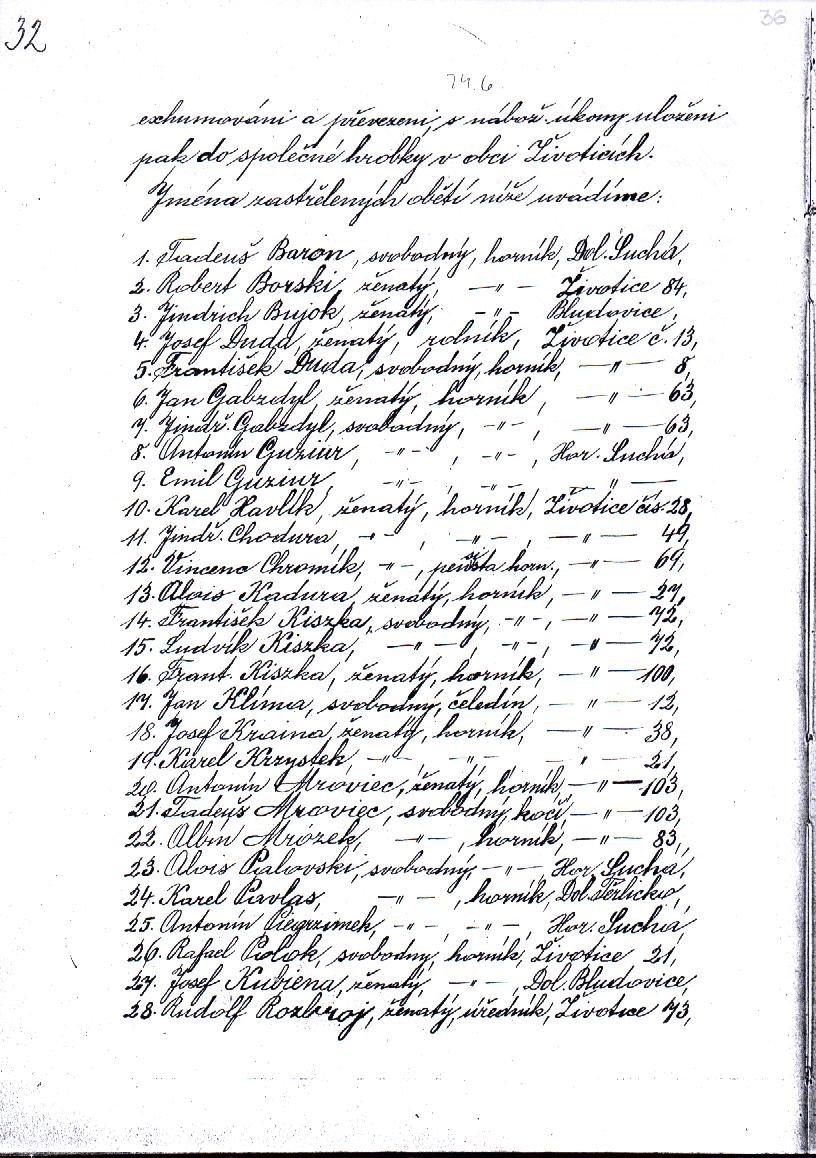 32
36
74.6
exhumováni a převezeni, s nábož. úkony uloženi
pak do společné hrobky v obci Životicích.
Jména zastřelených obětí níže uvádíme:
1. Tadeuš Baron, svobodný, horník, Dol. Suchá,
2. Robert Borski, ženatý, —"— Životice 84,
3. Jindrich Bujok, ženatý, —"— Bludovice,
4. Josef Duda, ženatý, rolník, Životice č. 13,
5. František Duda, svobodný, horník, —"— 8,
6. Jan Gabzdyl, ženatý, horník, —"— 63,
7. Jindř. Gabzdyl, svobodný, —"—, —"— 63,
8. Antonín Guziur, —"—, —"—, Hor. Suchá,
9. Emil Guziur, —"— —"— —"—
10. Karel Havlík, ženatý, horník, Životice čís. 28,
11. Jindř. Chodura, —"—, —"—, —"— 49,
12. Vincenc Chromík, —"—, pensista horn., —"— 69,
13. Alois Kadura, ženatý, horník, —"— 27,
14. František Kiszka, svobodný, —"—, —"— 72,
15. Ludvík Kiszka, —"—, —"—, —"— 72,
16. Frant. Kiszka, ženatý, horník, —"— 100,
17. Jan Klima, svobodný, čeledín, —"— 12,
18. Josef Kraina, ženatý, horník, —"— 38,
19. Karel Krzystek, —"— —"— —"— 21,
20. Antonín Mroviec, ženatý, horník, —"— 103,
21. Tadeuš Mroviec, svobodný, kočí —"— 103,
22. Albín Mrozek, —"—, horník, —"— 83,
23. Alois Palovski, svobodný, —"—, Hor. Suchá,
24. Karel Pavlas, —"—, horník, Dol. Těrlicko,
25. Antonín Piegrzimek, —"— —"—, Hor. Suchá
26. Rafael Polok, svobodný, horník, Životice 21,
27. Josef Kubiena, ženatý, —"—, Dol. Bludovice,
28. Rudolf Rozbroj, ženatý, úředník, Životice 73,